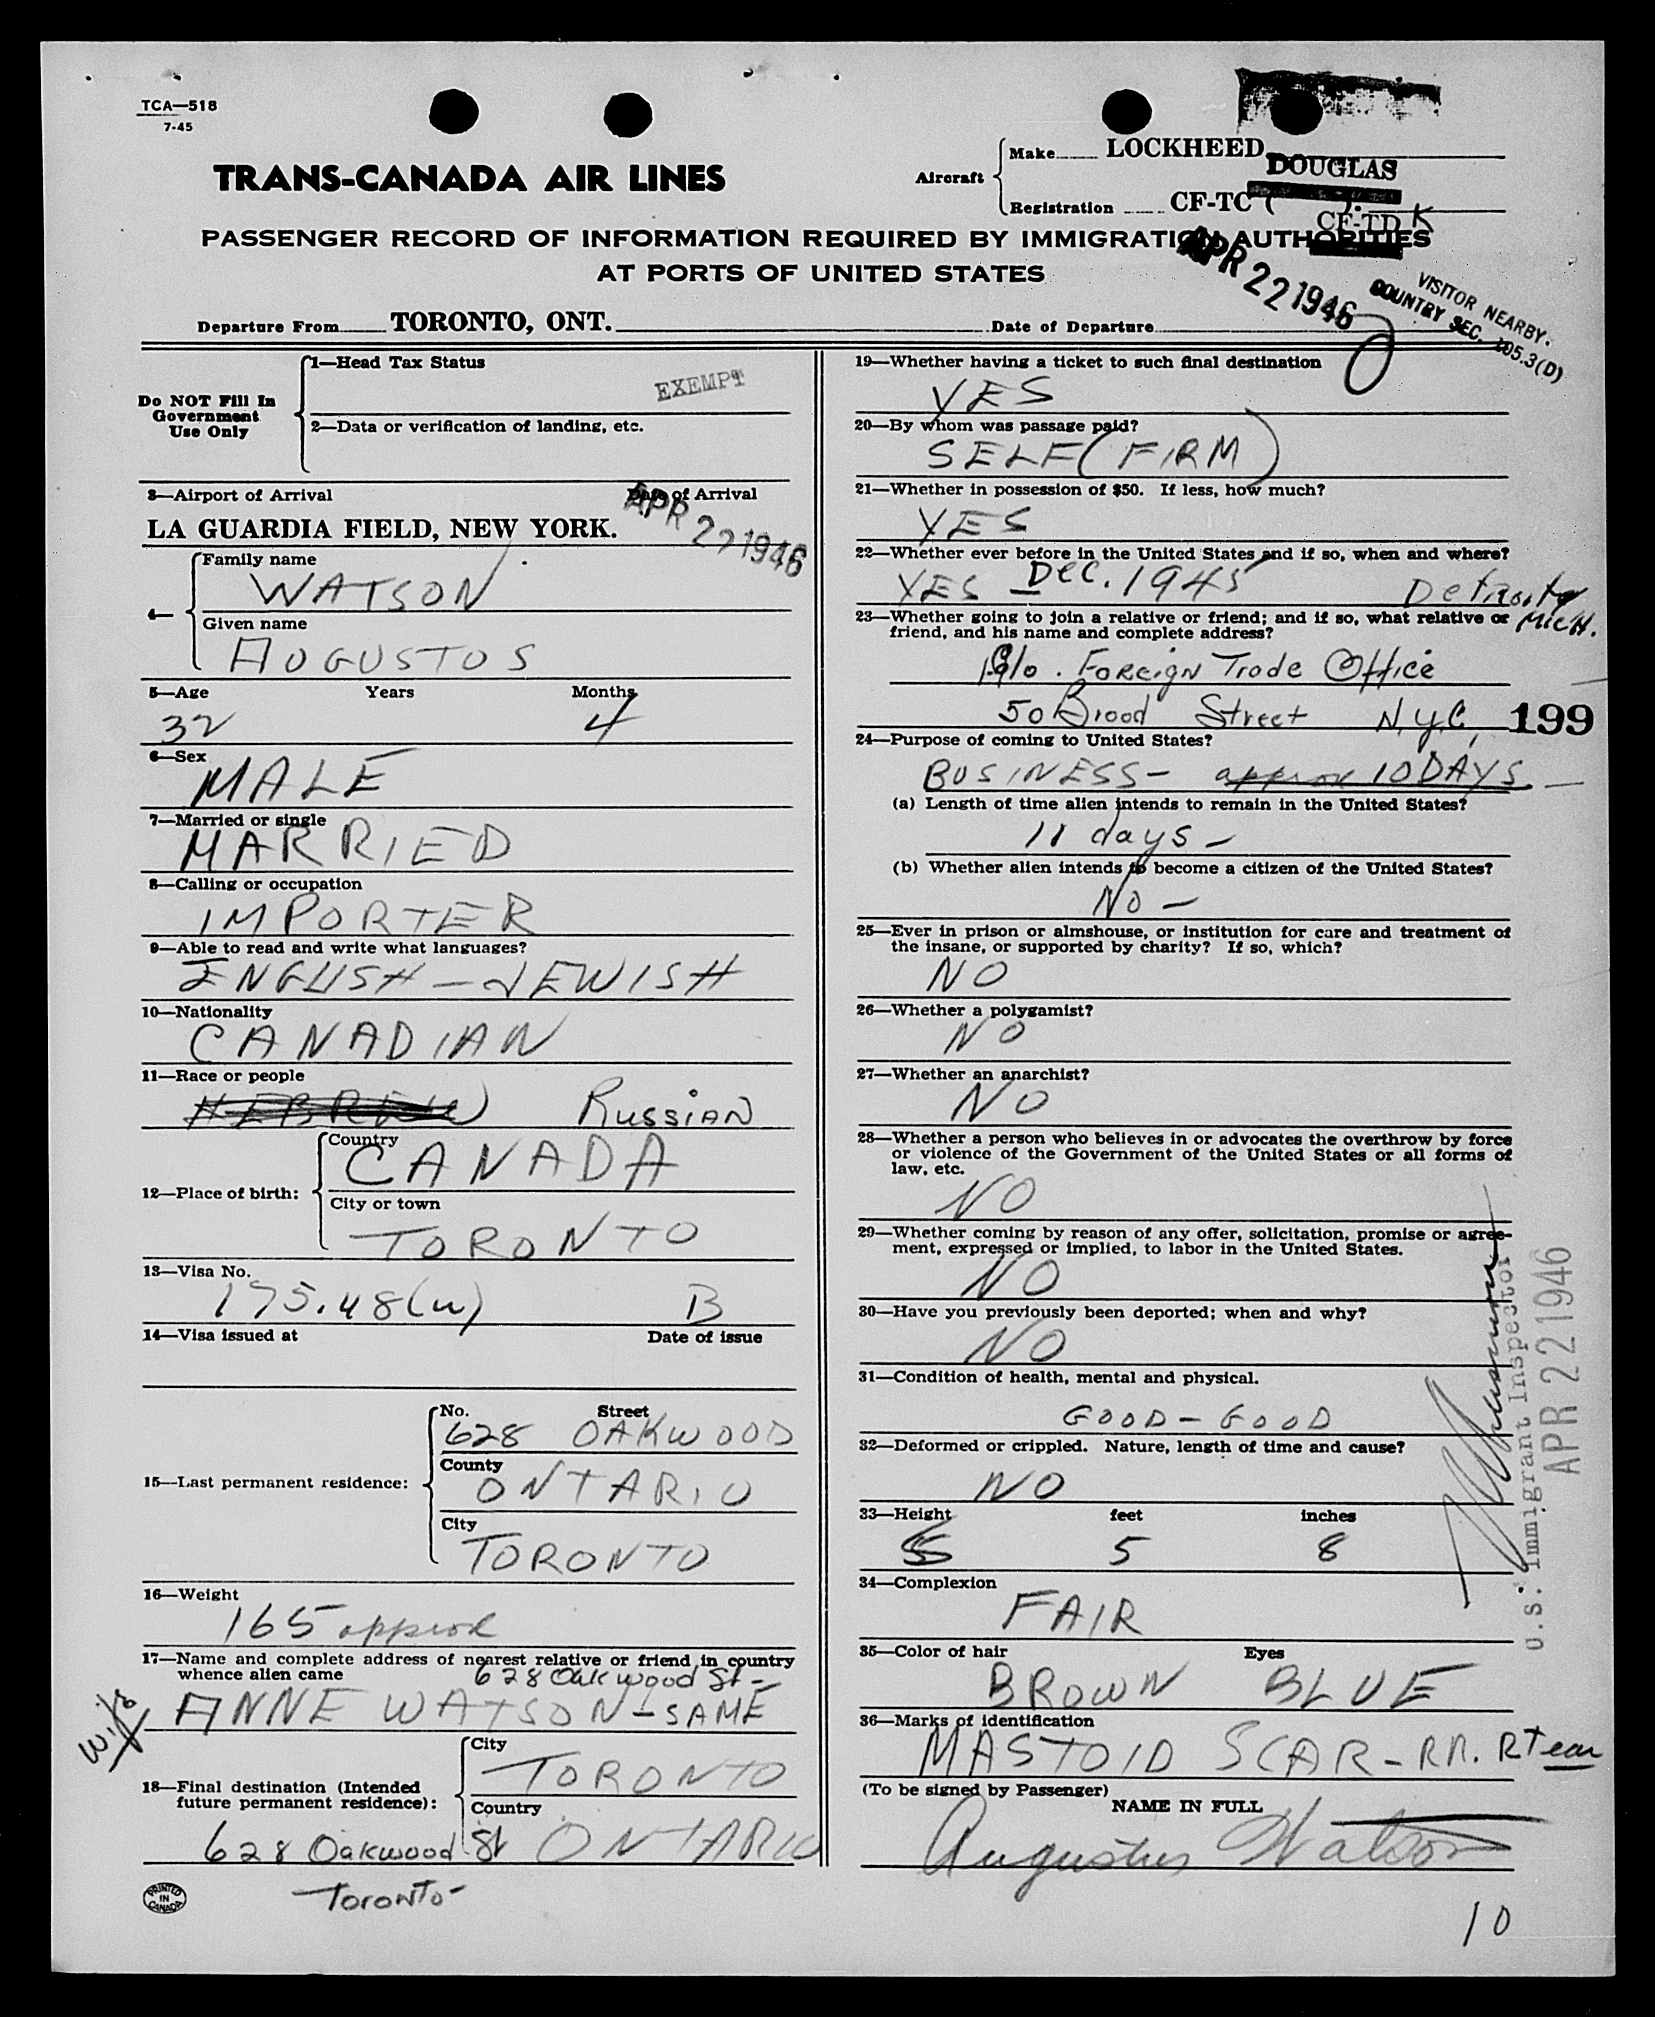 TCA—518
7-45
TRANS-CANADA AIR LINES
Aircraft
Make LOCKHEED
DOUGLAS
Registration CF-TC ( ).
CF-TD K
PASSENGER RECORD OF INFORMATION REQUIRED BY IMMIGRATION AUTHORITIES
AT PORTS OF UNITED STATES
APR 22 1946
VISITOR NEARBY.
COUNTRY SEC. 105.3(D)
Departure From TORONTO, ONT. Date of Departure
Do NOT Fill In
Government
Use Only
1—Head Tax Status
EXEMPT
2—Data or verification of landing, etc.
3—Airport of Arrival Date of Arrival
LA GUARDIA FIELD, NEW YORK.
APR 22 1946
4—
Family name
WATSON
Given name
AUGUSTUS
5—Age Years Months
32 4
6—Sex
MALE
7—Married or single
MARRIED
8—Calling or occupation
IMPORTER
9—Able to read and write what languages?
ENGLISH — JEWISH
10—Nationality
CANADIAN
11—Race or people
HEBREW RUSSIAN
12—Place of birth:
Country
CANADA
City or town
TORONTO
13—Visa No.
175.48(w) B
14—Visa issued at Date of issue
15—Last permanent residence:
No. Street
628 OAKWOOD
County
ONTARIO
City
TORONTO
16—Weight
165 approx
17—Name and complete address of nearest relative or friend in country
whence alien came
628 Oakwood St -
wife
ANNE WATSON — SAME
18—Final destination (Intended
future permanent residence):
City
TORONTO
Country
628 Oakwood St ONTARIO
Toronto-
PRINTED
IN
CANADA
19—Whether having a ticket to such final destination
YES
20—By whom was passage paid?
SELF (FIRM)
21—Whether in possession of $50. If less, how much?
YES
22—Whether ever before in the United States and if so, when and where?
YES — Dec. 1945 Detroit
Mich.
23—Whether going to join a relative or friend; and if so, what relative or
friend, and his name and complete address?
c/o. Foreign Trade Office
50 Broad Street N.Y.C.
199
24—Purpose of coming to United States?
BUSINESS- approx 10 DAYS
(a) Length of time alien intends to remain in the United States?
11 days -
(b) Whether alien intends to become a citizen of the United States?
No -
25—Ever in prison or almshouse, or institution for care and treatment of
the insane, or supported by charity? If so, which?
NO
26—Whether a polygamist?
NO
27—Whether an anarchist?
NO
28—Whether a person who believes in or advocates the overthrow by force
or violence of the Government of the United States or all forms of
law, etc.
NO
29—Whether coming by reason of any offer, solicitation, promise or agree-
ment, expressed or implied, to labor in the United States.
NO
30—Have you previously been deported; when and why?
NO
31—Condition of health, mental and physical.
GOOD — GOOD
32—Deformed or crippled. Nature, length of time and cause?
NO
33—Height feet inches
5 8
34—Complexion
FAIR
35—Color of hair Eyes
BROWN BLUE
36—Marks of identification
MASTOID SCAR — Rt ear
(To be signed by Passenger)
NAME IN FULL
Augustus Watson
U.S. Immigrant Inspector
APR 22 1946
10